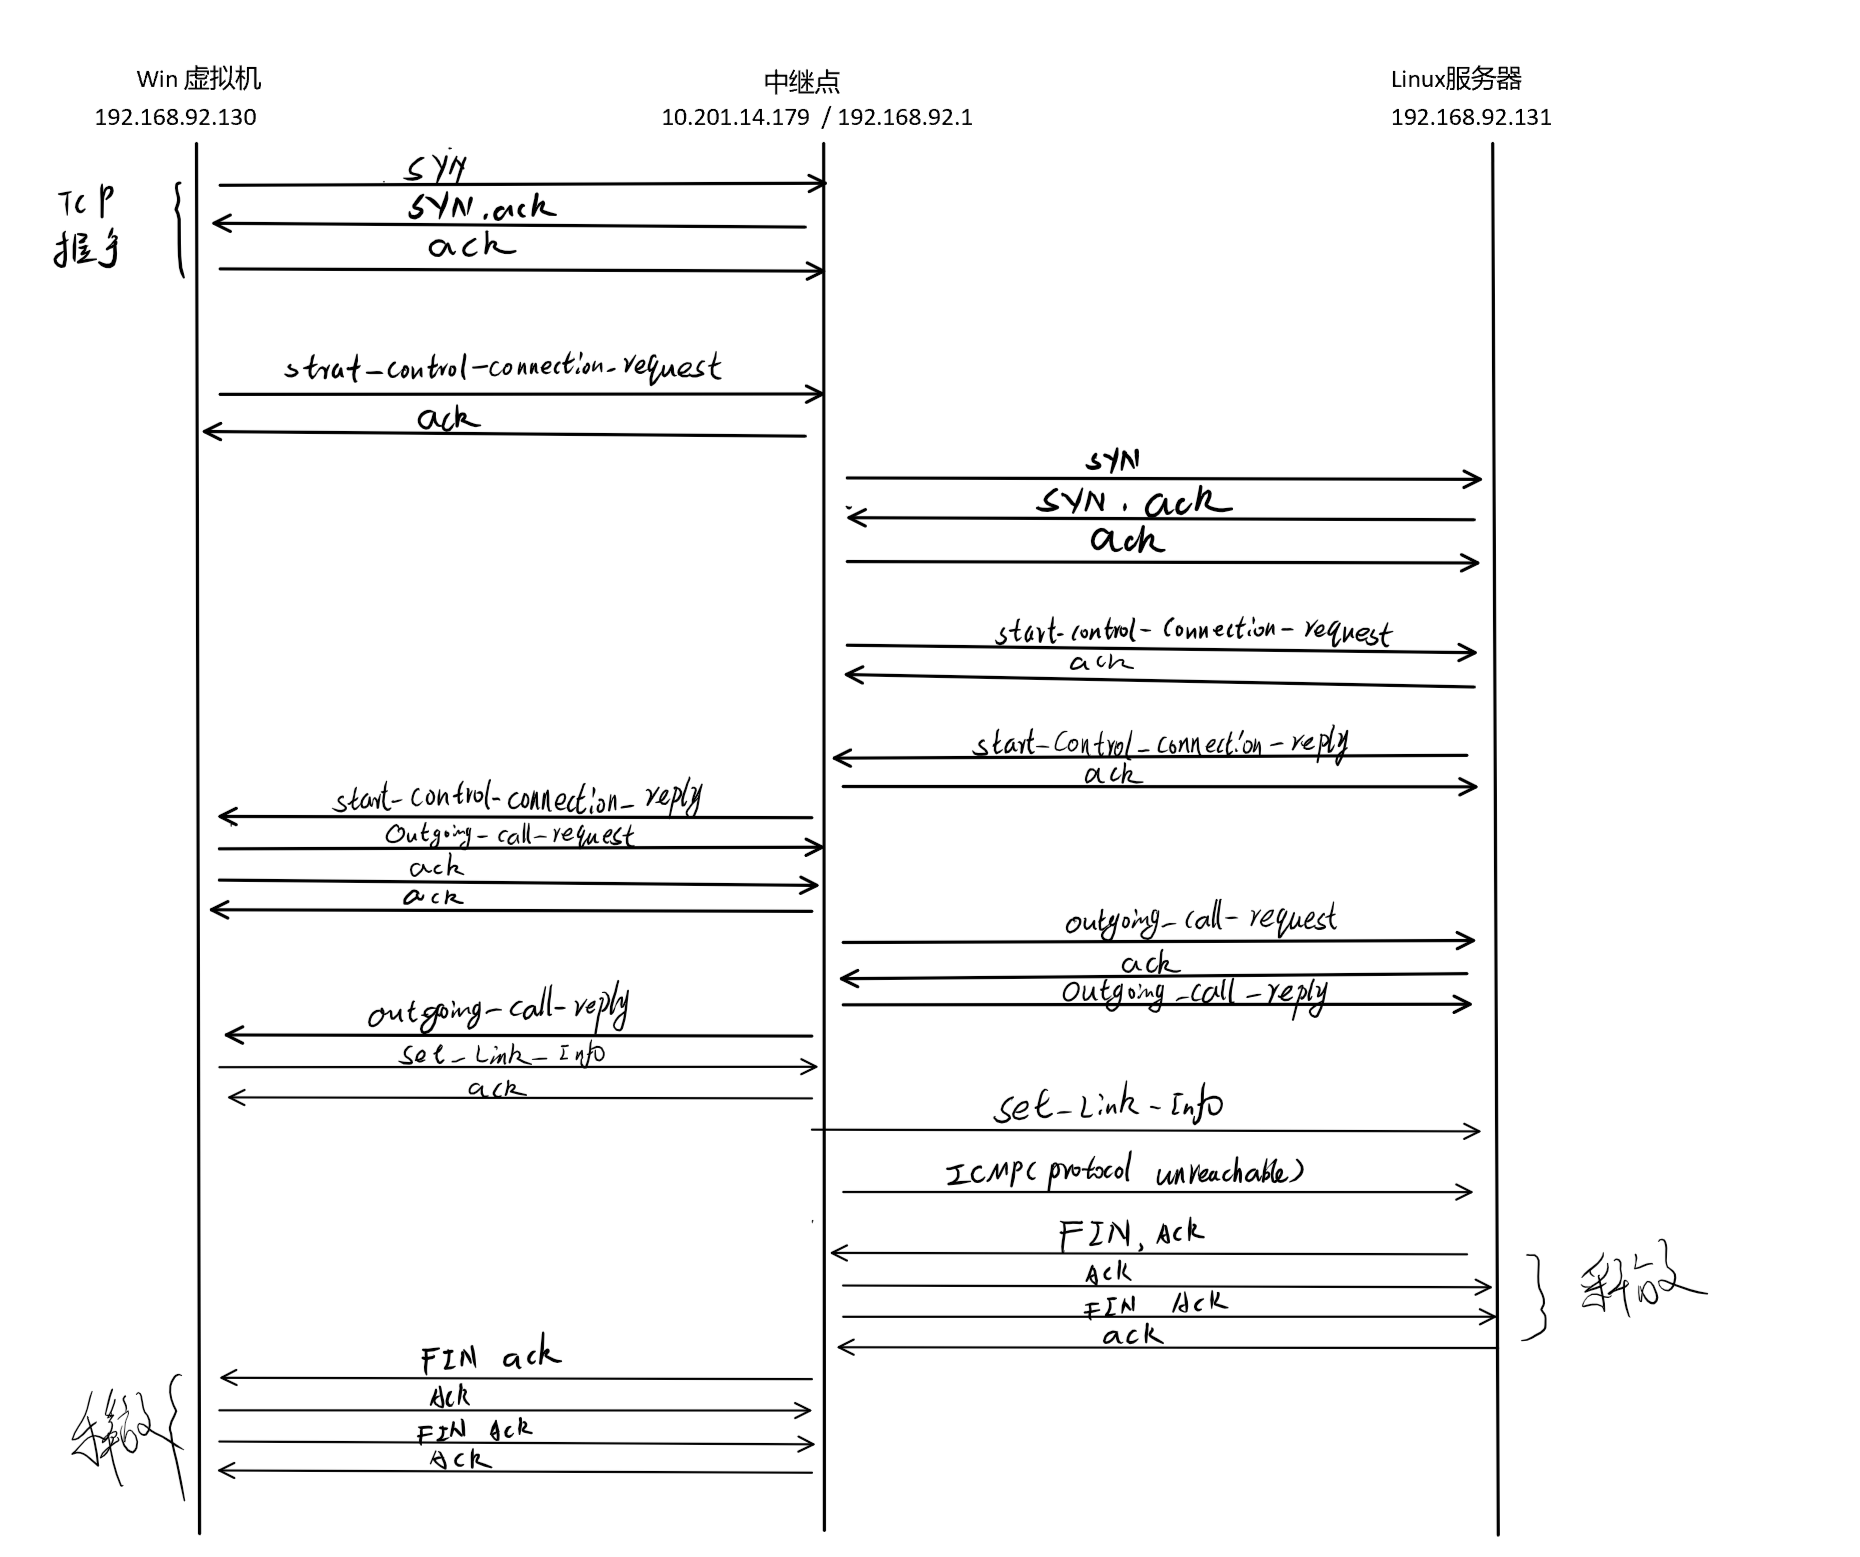 Win 虚拟机
中继点
Linux服务器
192.168.92.130
10.201.14.179 / 192.168.92.1
192.168.92.131
TCP
握手
SYN
SYN.ack
ack
strat-control-connection-request
ack
SYN
SYN.ack
ack
start-control-connection-request
ack
start-Control-connection-reply
ack
start-control-connection-reply
Outgoing-call-request
ack
ack
outgoing-call-request
ack
Outgoing-call-reply
outgoing-call-reply
Set-Link-Info
ack
set-Link-Info
ICMP(protocol unreachable)
FIN, Ack
Ack
FIN Ack
ack
释放
FIN ack
Ack
FIN Ack
Ack
释放